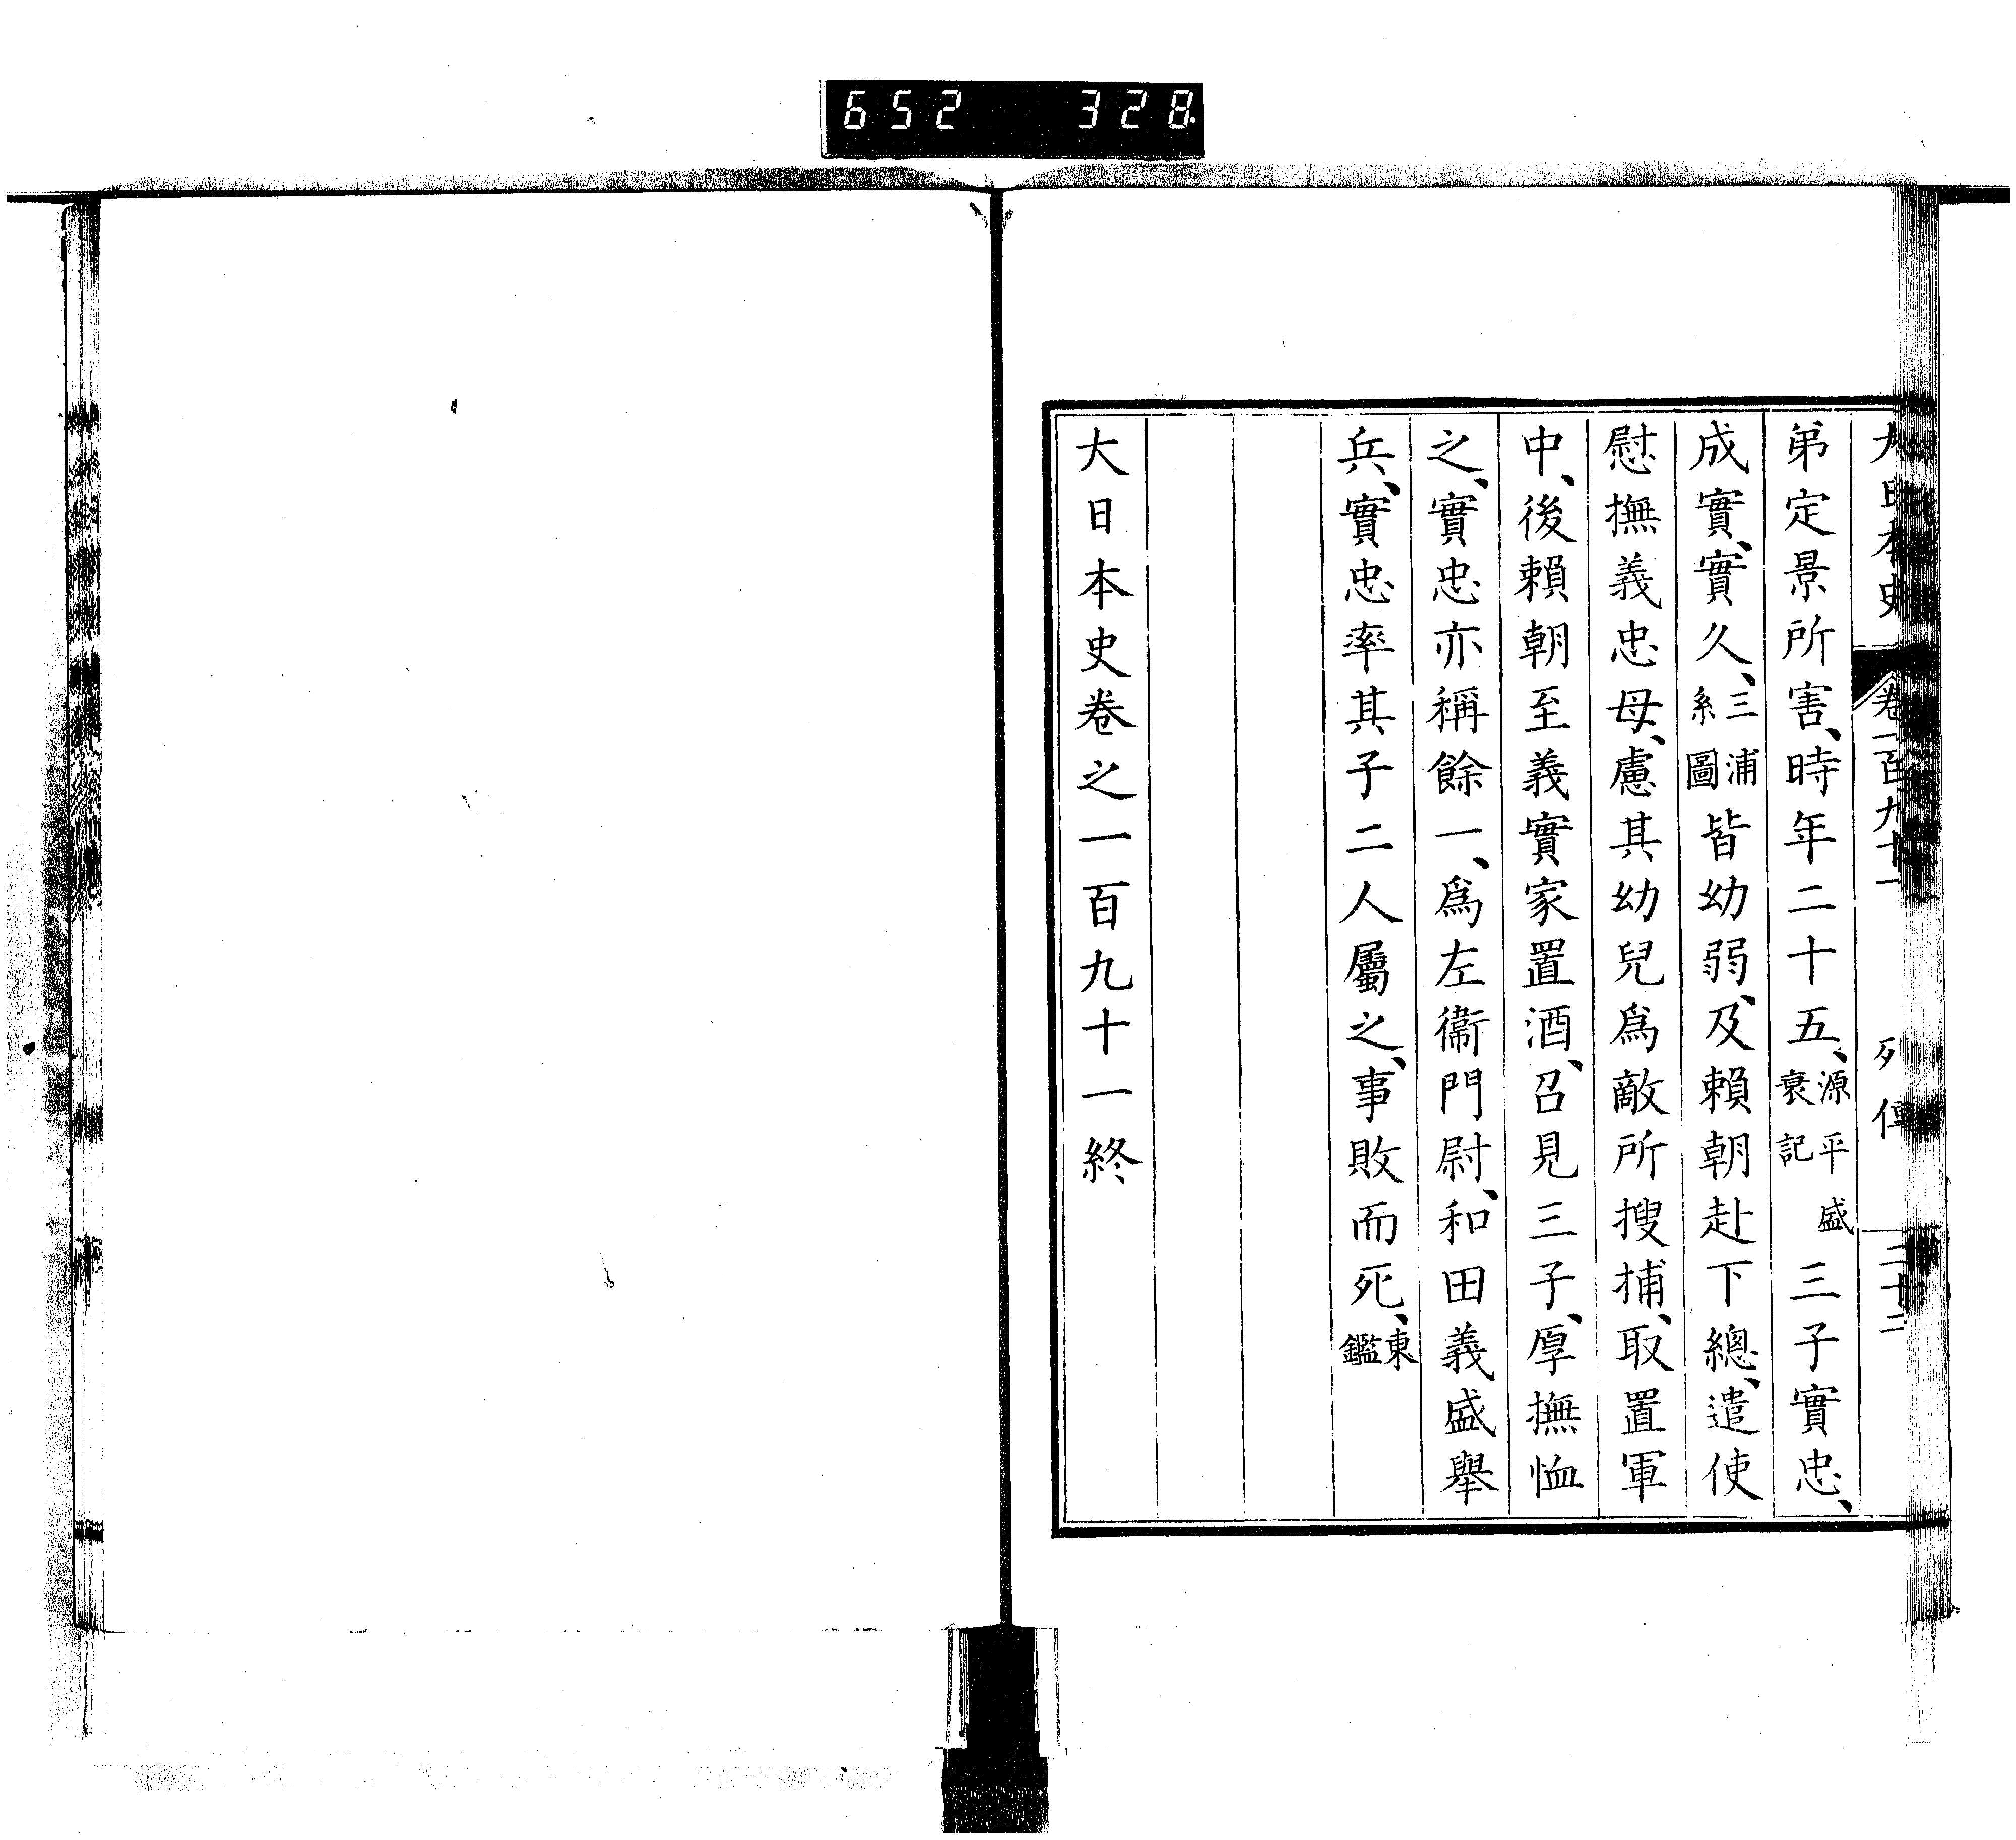 652 328.
大日本史 卷一百九十一 列傳 二十二
弟定景所害、時年二十五、源平盛衰記三子實忠、
成實、實久、三浦系圖皆幼弱、及賴朝赴下總、遣使
慰撫義忠母、慮其幼兒爲敵所搜捕、取置軍
中、後賴朝至義實家置酒、召見三子、厚撫恤
之、實忠亦稱餘一、爲左衞門尉、和田義盛舉
兵、實忠率其子二人屬之、事敗而死、東鑑
大日本史卷之一百九十一終